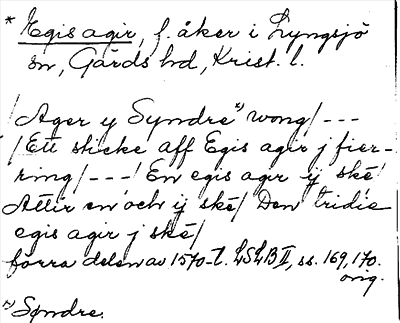 * Egis agir, f. åker i Lyngsjö
sn, Gärds hd, Krist. l.
/Ager y Syndre ¹⁾ wong/ ---
/Ett sticke aff Egis agir j fier-
ring/ ---/ En egis agir ij ské/
Attir en och ij ské/ Den tridie
egis agir j ské/
förra delen av 1570-t. LSLB II, ss. 169, 170.
orig.
¹⁾ Søndre.